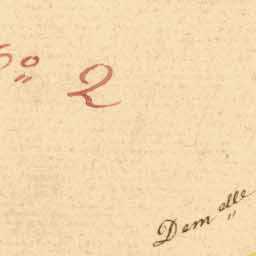 o 2
Demelle